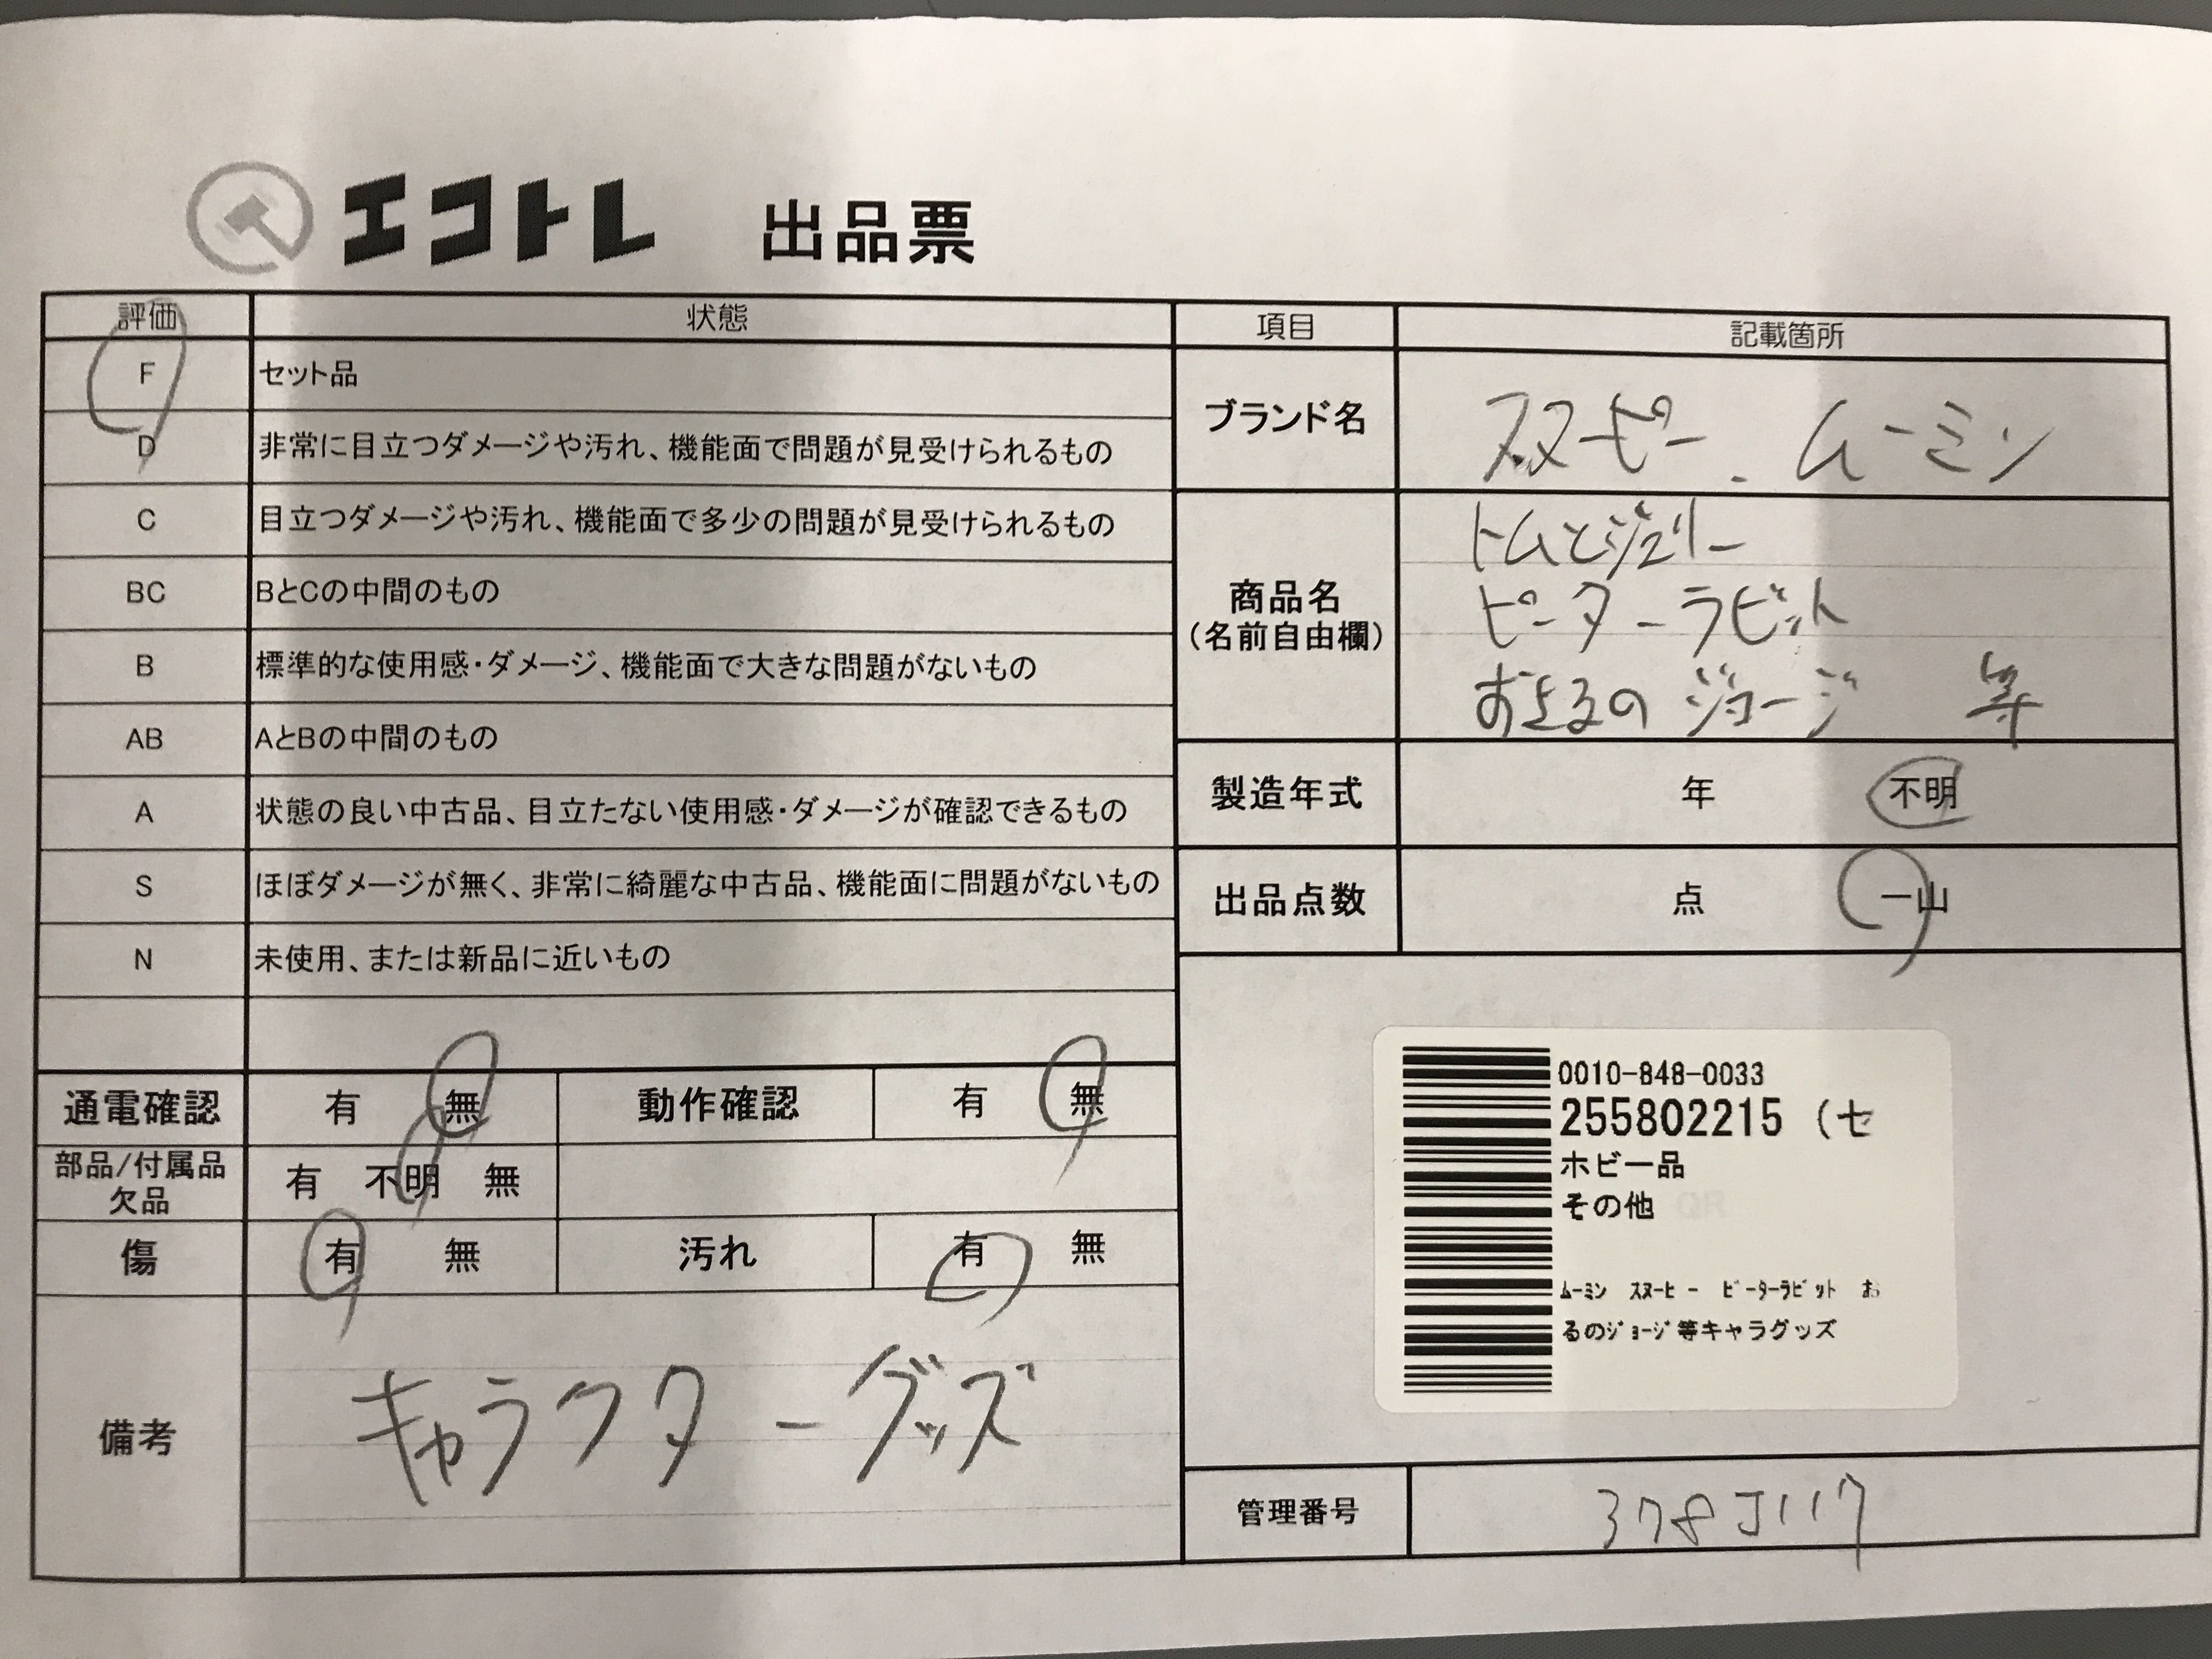 エコトレ 出品票
評価 状態
F セット品
D 非常に目立つダメージや汚れ、機能面で問題が見受けられるもの
C 目立つダメージや汚れ、機能面で多少の問題が見受けられるもの
BC BとCの中間のもの
B 標準的な使用感・ダメージ、機能面で大きな問題がないもの
AB AとBの中間のもの
A 状態の良い中古品、目立たない使用感・ダメージが確認できるもの
S ほぼダメージが無く、非常に綺麗な中古品、機能面に問題がないもの
N 未使用、または新品に近いもの
通電確認 有 無 動作確認 有 無
部品/付属品
欠品 有 不明 無
傷 有 無 汚れ 有 無
備考 キャラクターグッズ
項目 記載箇所
ブランド名 スヌーピー. ムーミン
商品名
(名前自由欄)
トムとジェリー
ピーターラビット
おさるのジョージ 等
製造年式 年 不明
出品点数 点 一山
0010-848-0033
255802215 (セ
ホビー品
その他
ムーミン スヌーピー ピーターラビット お
るのジョージ等キャラグッズ
管理番号 378J117